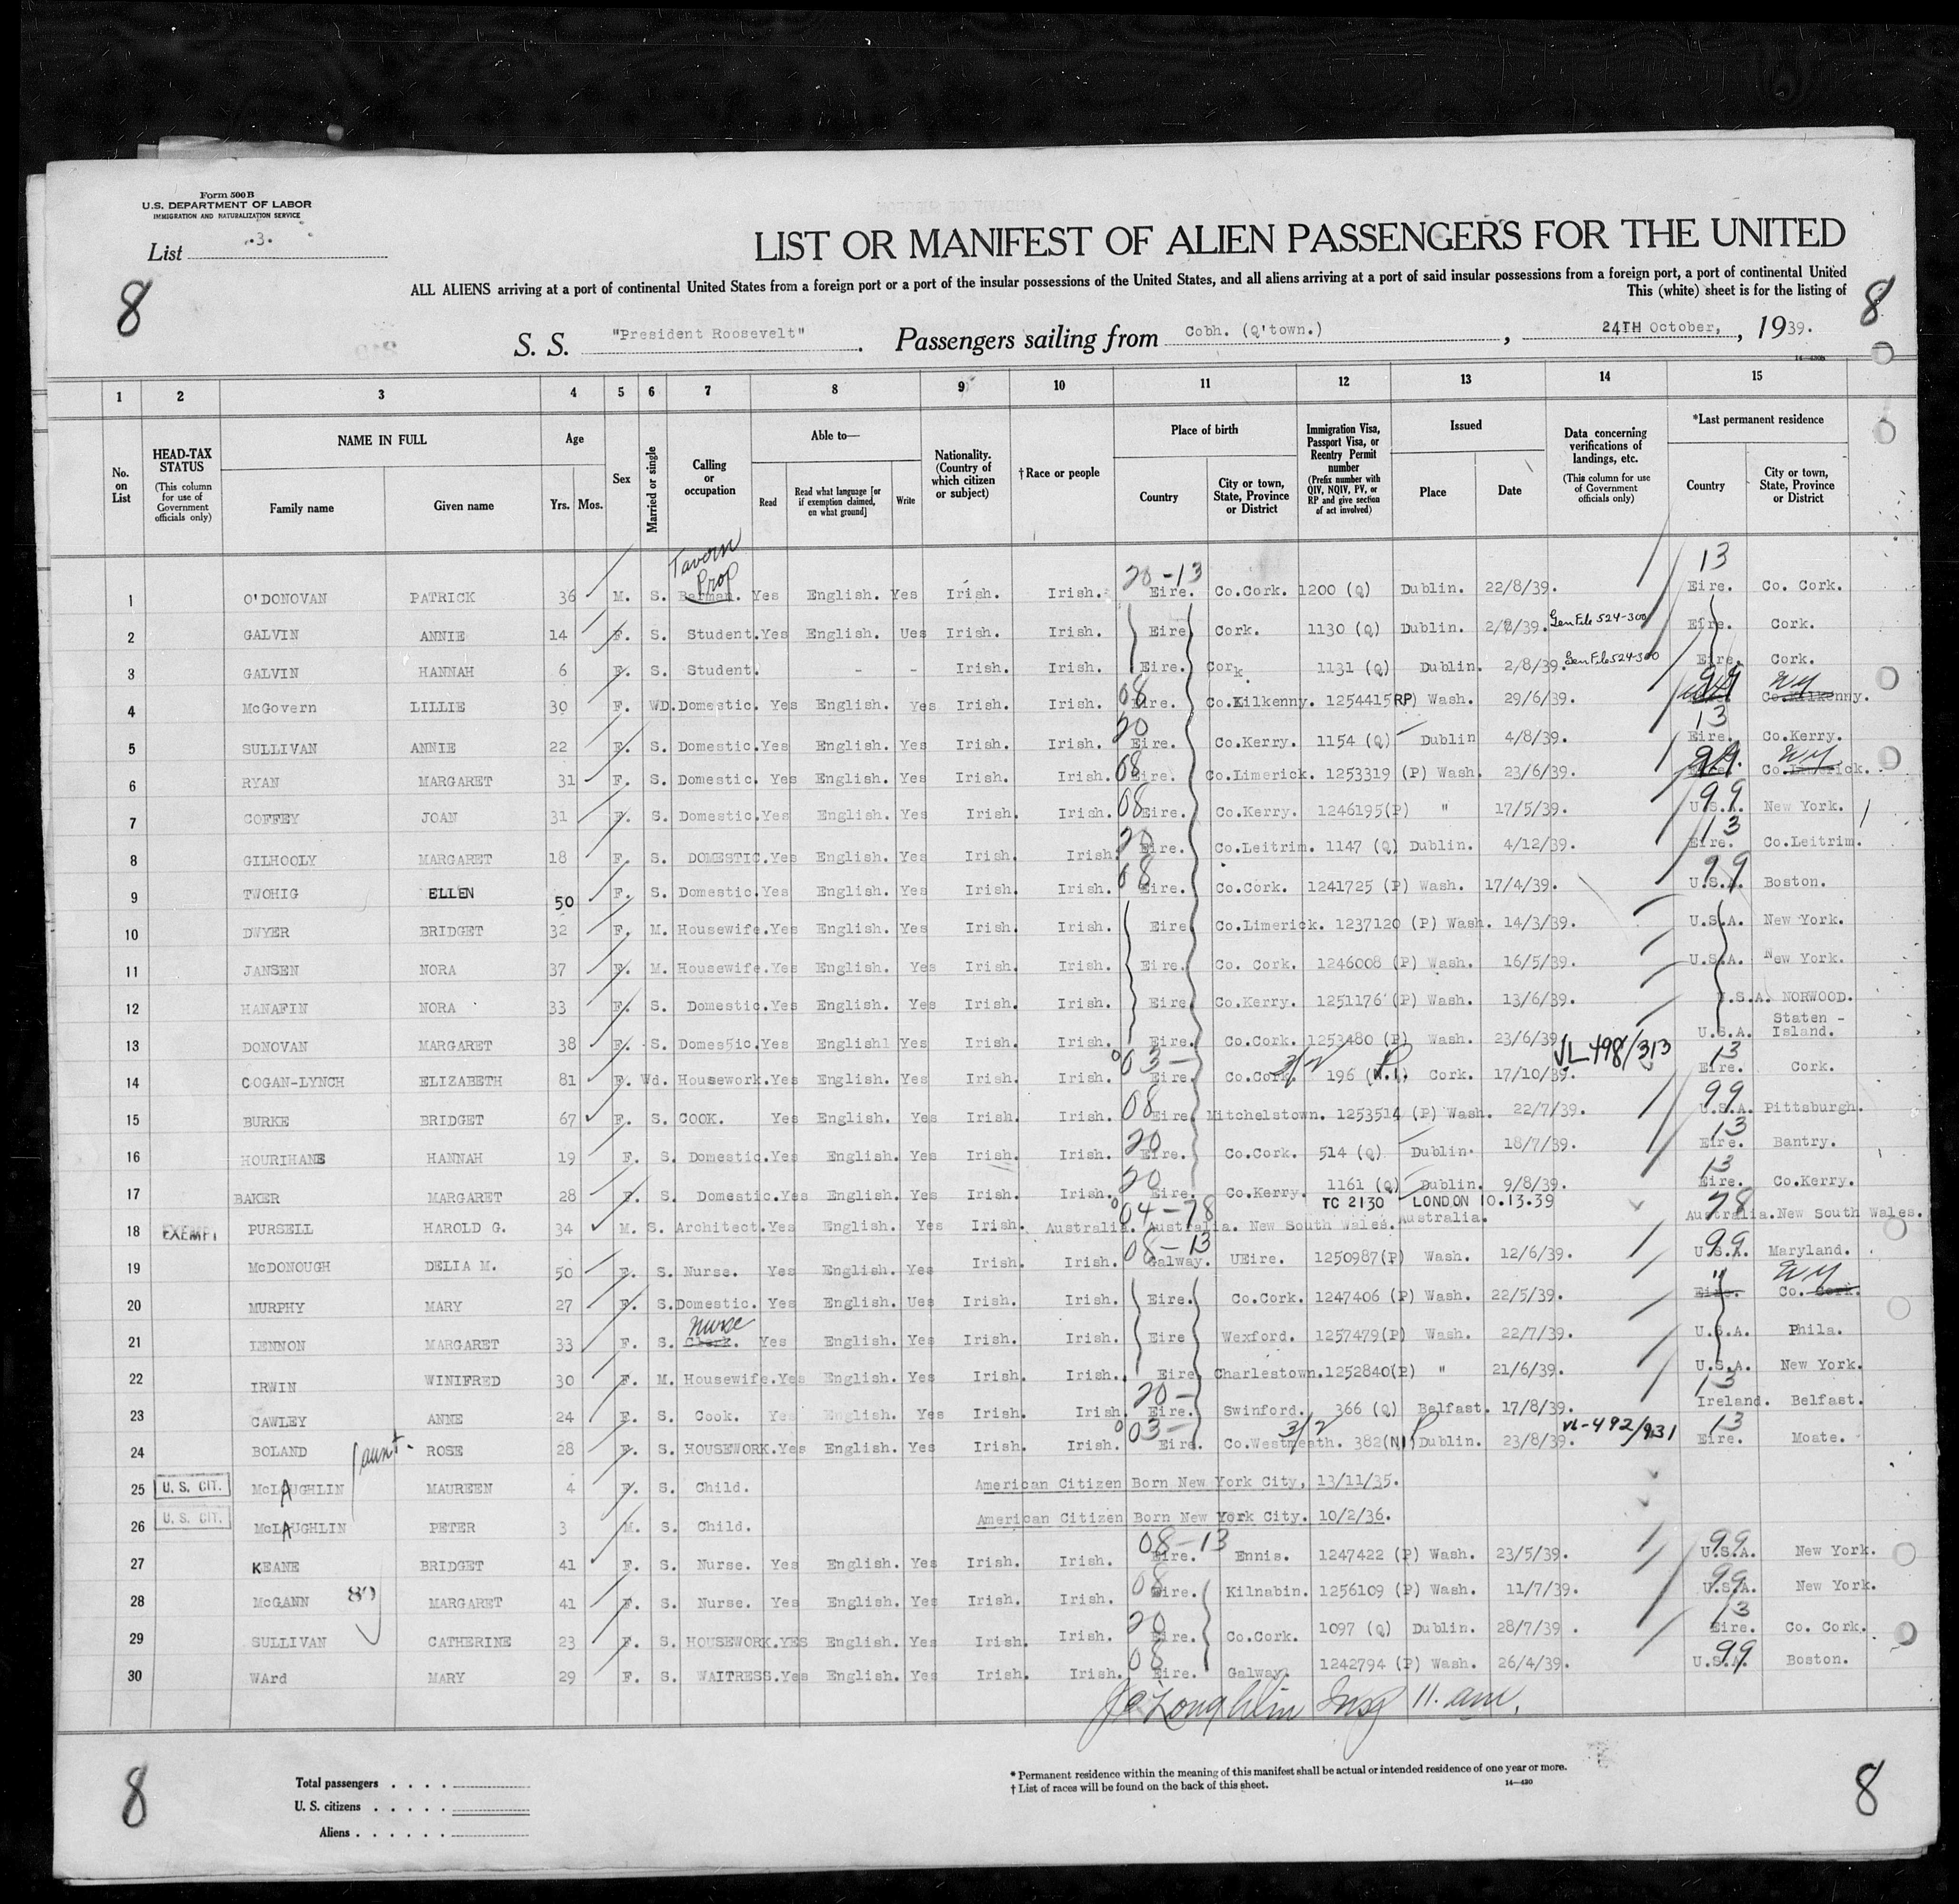 Form 500 B
U.S. DEPARTMENT OF LABOR
IMMIGRATION AND NATURALIZATION SERVICE
List .3.
LIST OR MANIFEST OF ALIEN PASSENGERS FOR THE UNITED
ALL ALIENS arriving at a port of continental United States from a foreign port or a port of the insular possessions of the United States, and all aliens arriving at a port of said insular possessions from a foreign port, a port of continental United
This (white) sheet is for the listing of
8 8
S. S. "President Roosevelt" . Passengers sailing from Cobh. (Q'town.) , 24TH October, , 1939.
1 2 3 4 5 6 7 8 9 10 11 12 13 14 15
No. on List
HEAD-TAX STATUS (This column for use of Government officials only)
NAME IN FULL
Family name Given name
Age
Yrs. Mos.
Sex
Married or single
Calling or occupation
Able to—
Read
Read what language [or if exemption claimed, on what ground]
Write
Nationality. (Country of which citizen or subject)
†Race or people
Place of birth
Country
City or town, State, Province or District
Immigration Visa, Passport Visa, or Reentry Permit number (Prefix number with QIV, NQIV, PV, or RP and give section of act involved)
Issued
Place Date
Data concerning verifications of landings, etc. (This column for use of Government officials only)
*Last permanent residence
Country
City or town, State, Province or District
Tavern Prop 20-13 13
1 O'DONOVAN PATRICK 36 M. S. Barman. Yes English. Yes Irish. Irish. Eire. Co.Cork. 1200 (Q) Dublin. 22/8/39. Eire. Co. Cork.
2 GALVIN ANNIE 14 F. S. Student. Yes English. Ues Irish. Irish. Eire Cork. 1130 (Q) Dublin. 2/8/39. Gen File 524-300 Eire. Cork.
3 GALVIN HANNAH 6 F. S. Student. - - Irish. Irish. Eire. Cork. 1131 (Q) Dublin. 2/8/39. Gen File 524-300 Eire. Cork.
4 McGovern LILLIE 39 F. WD. Domestic. Yes English. Yes Irish. Irish. 08 Eire. Co.Kilkenny. 1254415 RP) Wash. 29/6/39. 99 Co.Kilkenny. NY
5 SULLIVAN ANNIE 22 F. S. Domestic. Yes English. Yes Irish. Irish. 20 Eire. Co.Kerry. 1154 (Q) Dublin 4/8/39. 13 Eire. Co.Kerry.
6 RYAN MARGARET 31 F. S. Domestic. Yes English. Yes Irish. Irish. 08 Eire. Co.Limerick. 1253319 (P) Wash. 23/6/39. 99. Co.Limerick. NY
7 COFFEY JOAN 31 F. S. Domestic. Yes English. Yes Irish. Irish. 08 Eire. Co.Kerry. 1246195(P) " 17/5/39. 99 U.S.A. New York.
8 GILHOOLY MARGARET 18 F. S. DOMESTIC. Yes English. Yes Irish. Irish. 20 Eire. Co.Leitrim. 1147 (Q) Dublin. 4/12/39. 13 Eire. Co.Leitrim.
9 TWOHIG ELLEN 50 F. S. Domestic. Yes English. Yes Irish. Irish. 08 Eire. Co.Cork. 1241725 (P) Wash. 17/4/39. 99 U.S.A. Boston.
10 DWYER BRIDGET 32 F. M. Housewife. Yes English. Yes Irish. Irish. Eire Co.Limerick. 1237120 (P) Wash. 14/3/39. U.S.A. New York.
11 JANSEN NORA 37 F. M. Housewife. Yes English. Yes Irish. Irish. Eire. Co. Cork. 1246008 (P) Wash. 16/5/39. U.S.A. New York.
12 HANAFIN NORA 33 F. S. Domestic. Yes English. Yes Irish. Irish. Eire Co.Kerry. 1251176 (P) Wash. 13/6/39. U.S.A. NORWOOD.
13 DONOVAN MARGARET 38 F. S. Domes5ic. Yes Englishl Yes Irish. Irish. Eire. Co.Cork. 1253480 (P) Wash. 23/6/39 U.S.A. Staten - Island.
14 COGAN-LYNCH ELIZABETH 81 F. Wd. Housework. Yes English. Yes Irish. Irish. 03- Eire. Co.Cork. 3/2 196 (N.I) P Cork. 17/10/39. VL-498/313 13 Eire. Cork.
15 BURKE BRIDGET 67 F. S. COOK. Yes English. Yes Irish. Irish. 08 Eire Mitchelstown. 1253514 (P) Wash. 22/7/39. 99 U.S.A. Pittsburgh.
16 HOURIHANE HANNAH 19 F. S. Domestic. Yes English. Yes Irish. Irish. 20 Eire. Co.Cork. 514 (Q) Dublin. 18/7/39. 13 Eire. Bantry.
17 BAKER MARGARET 28 F. S. Domestic. Yes English. Yes Irish. Irish. 20 Eire. Co.Kerry. 1161 (Q) Dublin. 9/8/39. 13 Eire. Co.Kerry.
TC 2130 LONDON 10.13.39
18 EXEMPT PURSELL HAROLD G. 34 M. S. Architect. Yes English. Yes Irish. Australia. 04-78 Australia. New South Wales. Australia. 78 Australia. New South Wales.
19 McDONOUGH DELIA M. 50 F. S. Nurse. Yes English. Yes Irish. Irish. 08-13 Galway. UEire. 1250987(P) Wash. 12/6/39. 99 U.S.A. Maryland.
20 MURPHY MARY 27 F. S. Domestic. Yes English. Ues Irish. Irish. Eire. Co.Cork. 1247406 (P) Wash. 22/5/39. " Eire. Co. Cork. NY
21 LENNON MARGARET 33 F. S. Clerk. Nurse Yes English. Yes Irish. Irish. Eire Wexford. 1257479(P) Wash. 22/7/39. U.S.A. Phila.
22 IRWIN WINIFRED 30 F. M. Housewife. Yes English. Yes Irish. Irish. Eire Charlestown. 1252840(P) " 21/6/39. U.S.A. New York.
23 CAWLEY ANNE 24 F. S. Cook. Yes English. Yes Irish. Irish. 20- Eire. Swinford. 366 (Q) Belfast. 17/8/39. 13 Ireland. Belfast.
24 BOLAND aunt. ROSE 28 F. S. HOUSEWORK. Yes English. Yes Irish. Irish. 03- Eire. Co.Westmeath. 3/2 382(NI) P Dublin. 23/8/39. VL-492/931 13 Eire. Moate.
25 U. S. CIT. McLAUGHLIN MAUREEN 4 F. S. Child. American Citizen Born New York City, 13/11/35.
26 U. S. CIT. McLAUGHLIN PETER 3 M. S. Child. American Citizen Born New York City. 10/2/36.
27 KEANE BRIDGET 41 F. S. Nurse. Yes English. Yes Irish. Irish. 08-13 Eire. Ennis. 1247422 (P) Wash. 23/5/39. 99 U.S.A. New York.
28 McGANN 89 MARGARET 41 F. S. Nurse. Yes English. Yes Irish. Irish. 08 Eire. Kilnabin. 1256109 (P) Wash. 11/7/39. 99 U.S.A. New York.
29 SULLIVAN CATHERINE 23 F. S. HOUSEWORK. YES English. Yes Irish. Irish. 20 Eire. Co.Cork. 1097 (Q) Dublin. 28/7/39 . 13 Eire. Co. Cork.
30 WArd MARY 29 F. S. WAITRESS. Yes English. Yes Irish. Irish. 08 Eire. Galway. 1242794 (P) Wash. 26/4/39. 99 U.S.A. Boston.
11. am.
8 8
Total passengers . . . .
U. S. citizens . . . . .
Aliens . . . . . .
* Permanent residence within the meaning of this manifest shall be actual or intended residence of one year or more.
† List of races will be found on the back of this sheet.
14—430